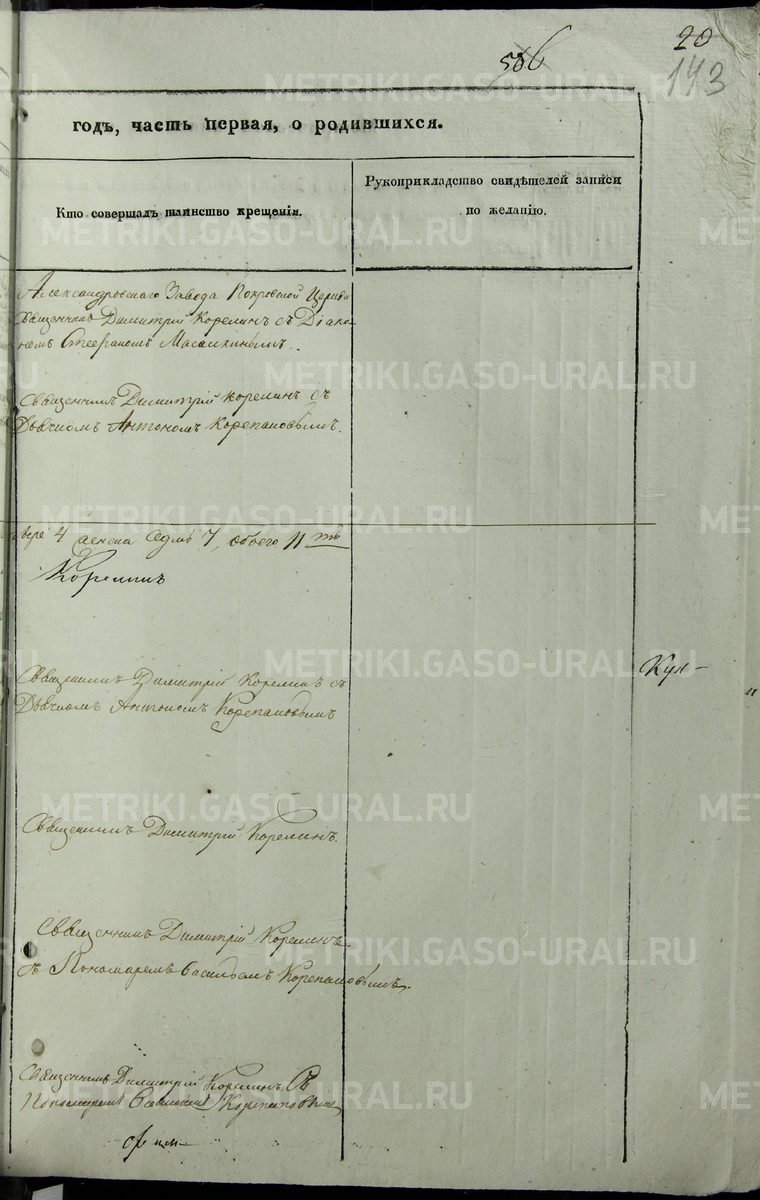 20
506
143
годъ, часть первая, о родившихся.
Кто совершалъ таинство крещенія.
Рукоприкладство свидѣтелей записи
по желанію.
Александровскаго Завода Покровской Церкви
Священникъ Димитрій Корелинъ съ Діако-
номъ Стефаномъ
Священникъ Димитрій Корелинъ съ
Дьячкомъ Антономъ Корепановымъ.
4 женска седмь 7, обоего 11ть
Корелинъ
Священникъ Димитрій Корелинъ съ
Дьячкомъ Антономъ Корепановымъ
Кун-
Священникъ Димитрій Корелинъ.
Священникъ Димитрій Корелинъ
съ Пономаремъ Васильемъ Корепановымъ.
Священникъ Димитрій Корелинъ съ
Пономаремъ Корепановым
METRIKI.GASO-URAL.RU